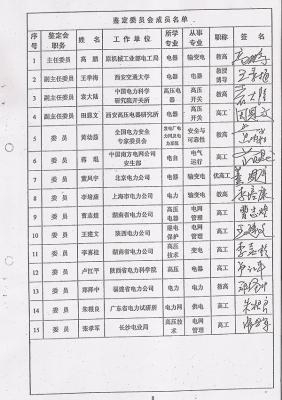 鉴定委员会成员名单
序号 鉴定会职务 姓名 工作单位 所学专业 从事专业 职称 签名
1 主任委员 高鹏 原机械工业部电工局 电器 输变电 教高
2 副主任委员 王季梅 西安交通大学 电器 电器 教授博导
3 副主任委员 袁大陆 中国电力科学研究院开关所 高压电器 高压开关 教高
4 副主任委员 田恩文 西安高压电器研究所 电器 高压开关 教高 田恩文
5 委员 黄幼茹 全国电力安全专家委员会 发电厂电力网及电力系统 安全与可靠性 教高
6 委员 蒋琨 中国南方电网公司安生部 电自 电气运行 高工
7 委员 董凤宇 北京电力公司 电器 输变电 教高工
8 委员 李培康 上海市电力公司 电力 输变电 教高 李培康
9 委员 曹志煌 湖南省电力公司 高压电器 电网管理 高工 曹志煌
10 委员 王建文 陕西电力公司 继电保护 电网管理 高工
11 委员 李喜桂 湖南省电力公司 高压技术 变电 高工 李喜桂
12 委员 卢江平 陕西省电力科学院 高压 电器 高工
13 委员 郑择中 福建省电力公司 电力 电力 教高
14 委员 朱根良 广东省电力试研所 电力网 供电 高工
15 委员 张孝军 长沙电业局 高压技术 电网管理 高工